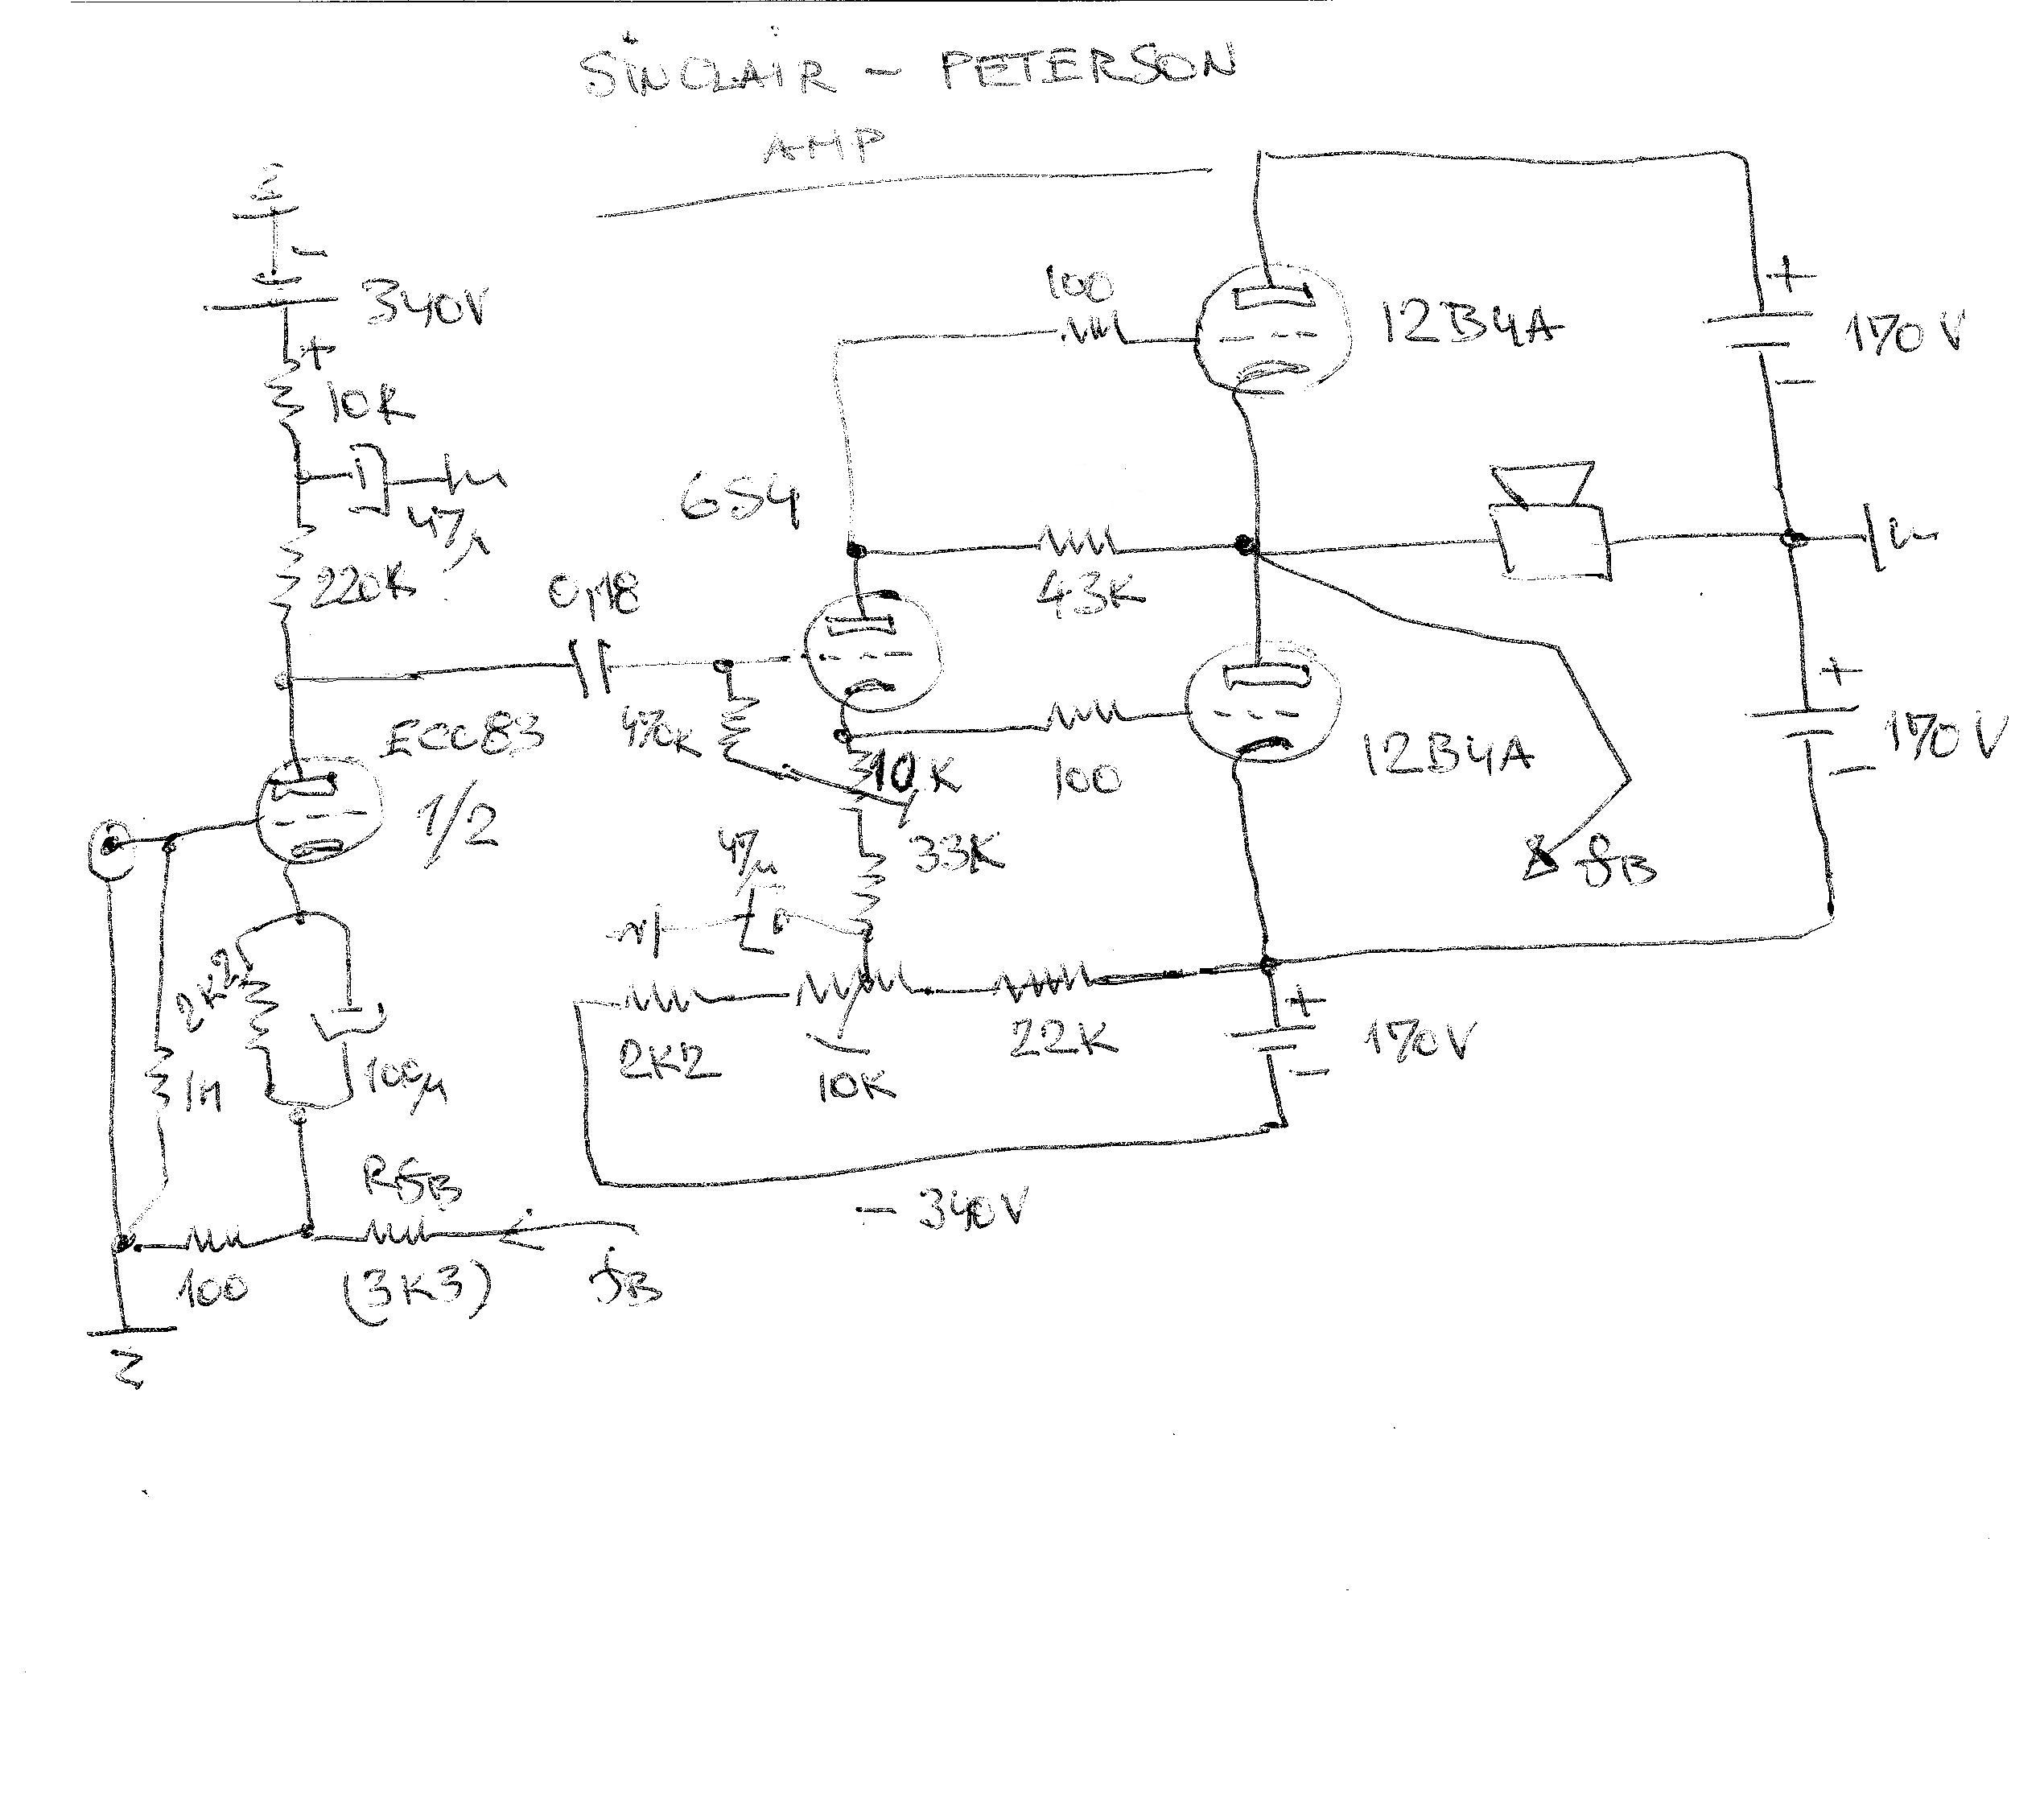 SINCLAIR - PETERSON
AMP
-
340V
+
10K
47µ
220K
0,18
6S4
100
12B4A
+
170V
-
43K
ECC83
1/2
470K
10K
100
12B4A
+
170V
-
33K
47µ
fB
2K2
100µ
1M
2K2
10K
22K
+
170V
-
RfB
- 340V
100
(3K3)
fB